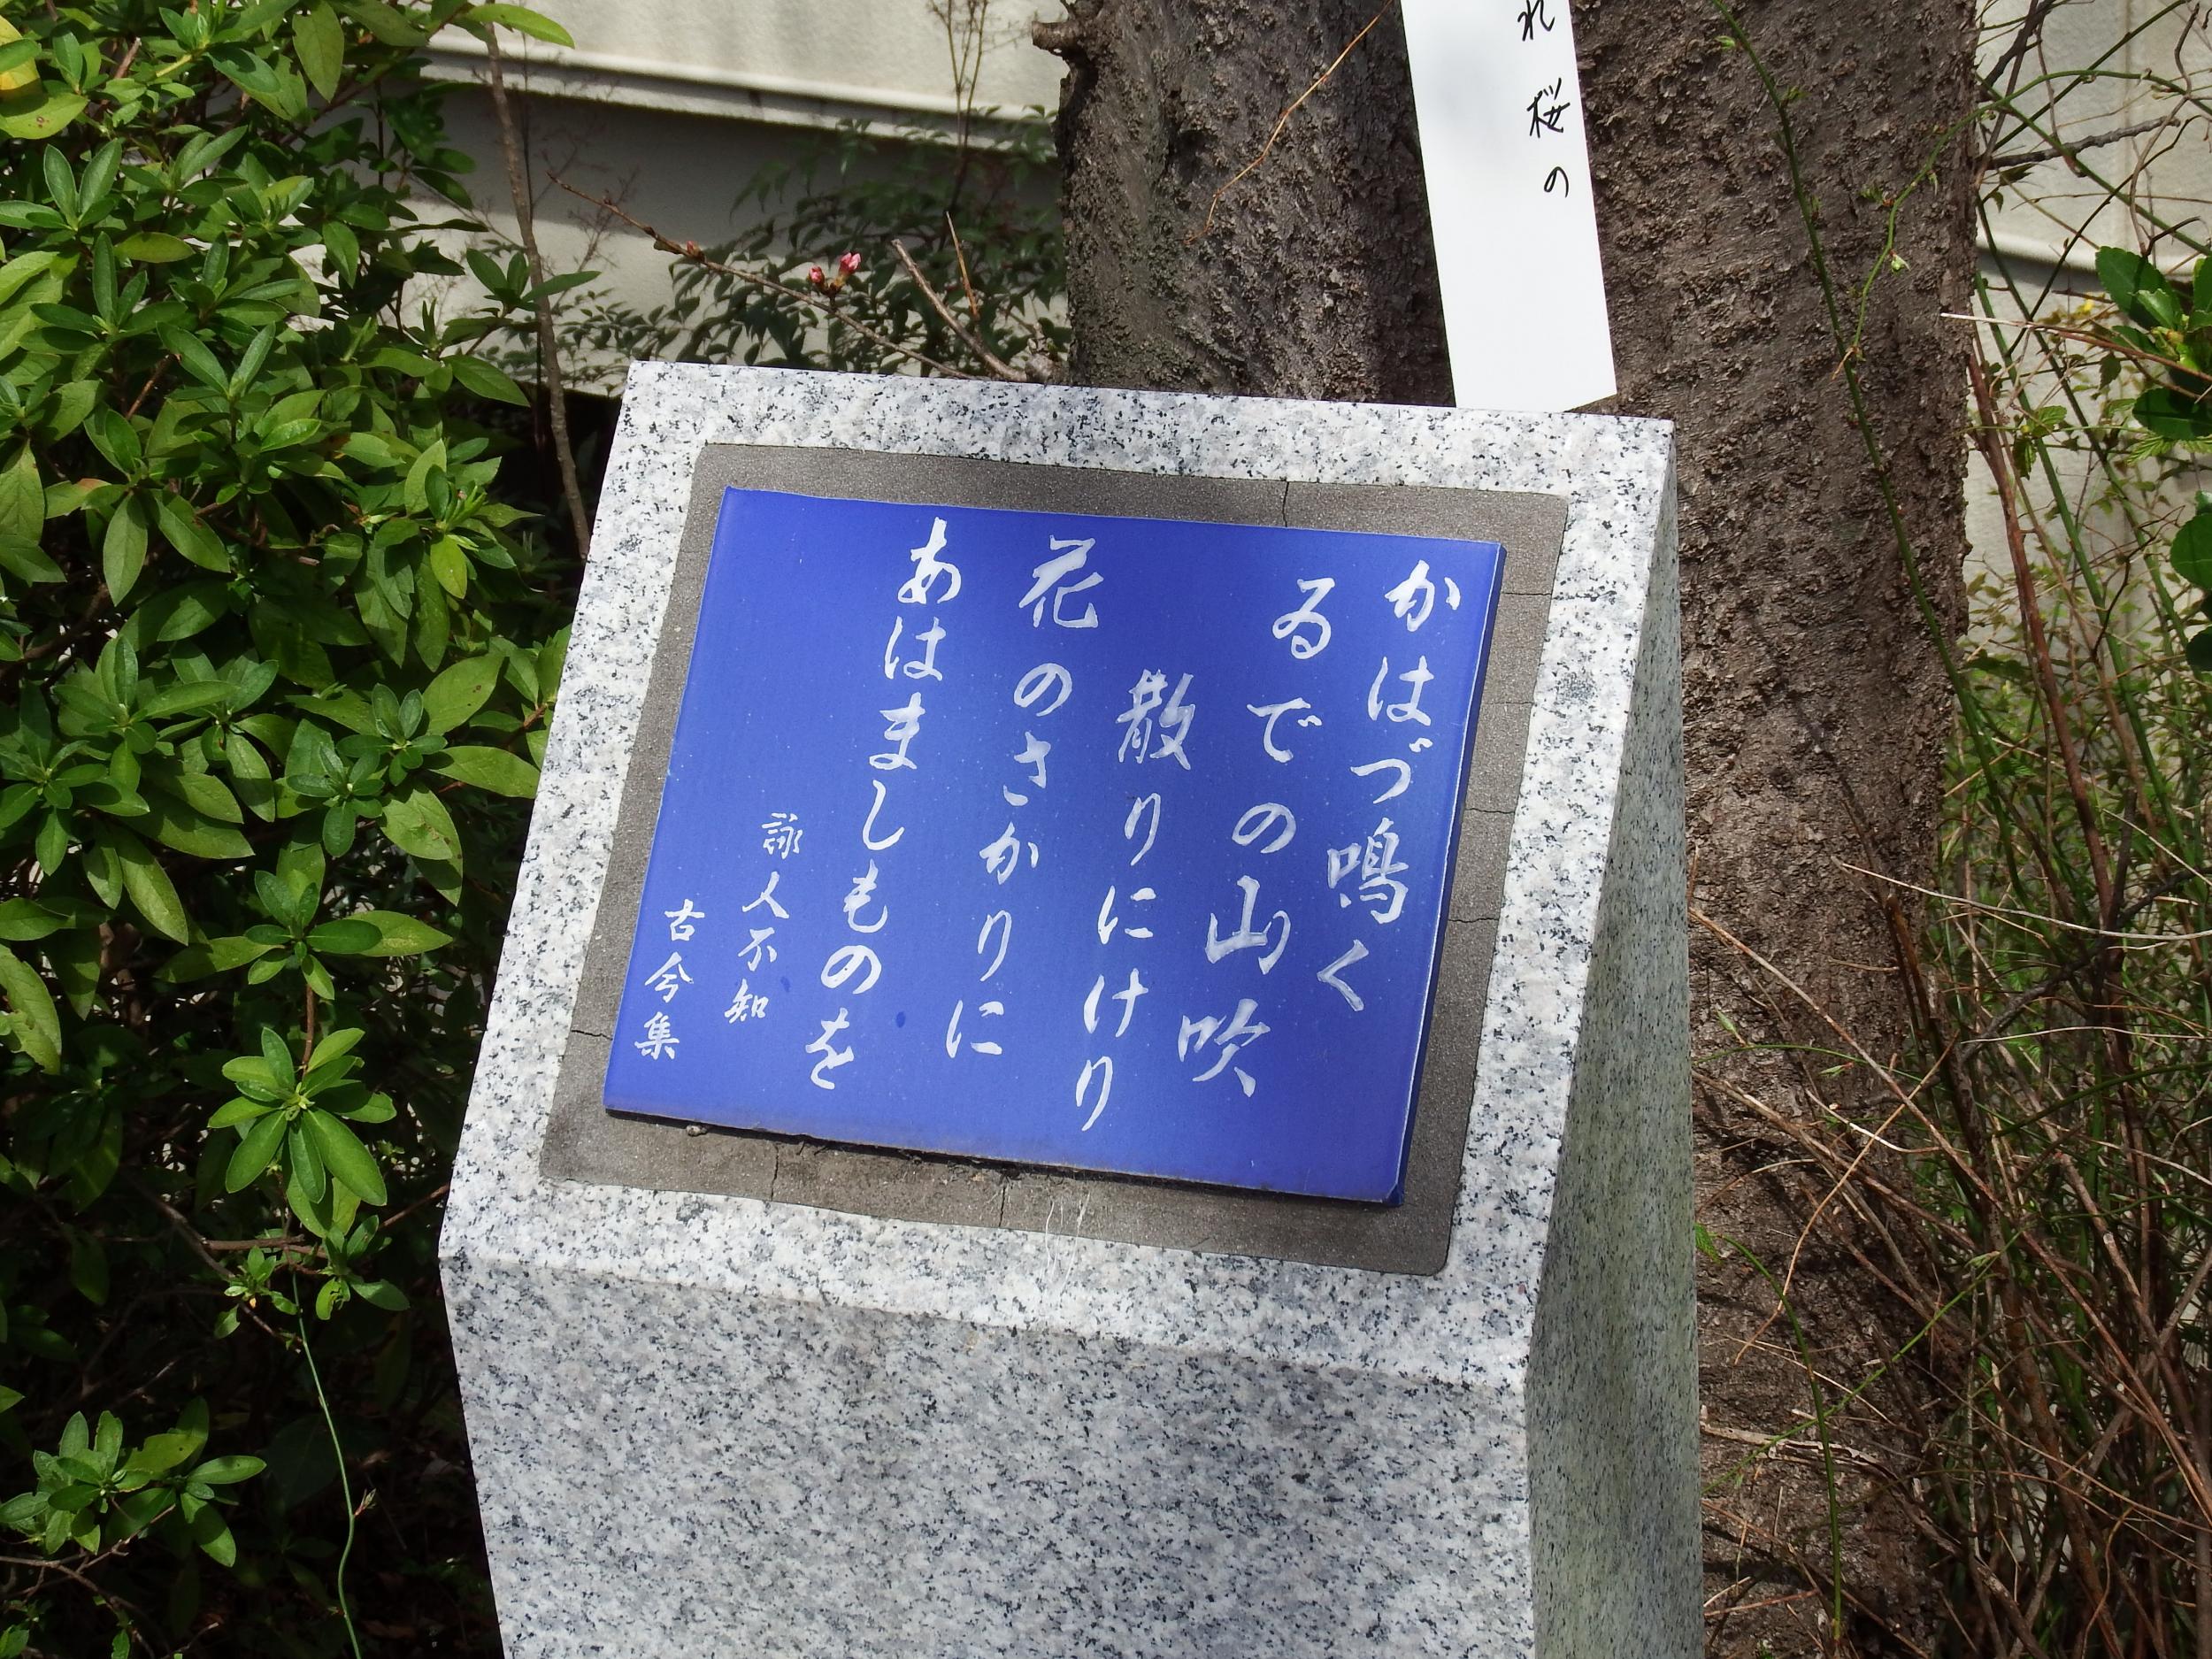 れ桜の
かはづ鳴く
ゐでの山吹
散りにけり
花のさかりに
あはましものを
詠人不知
古今集